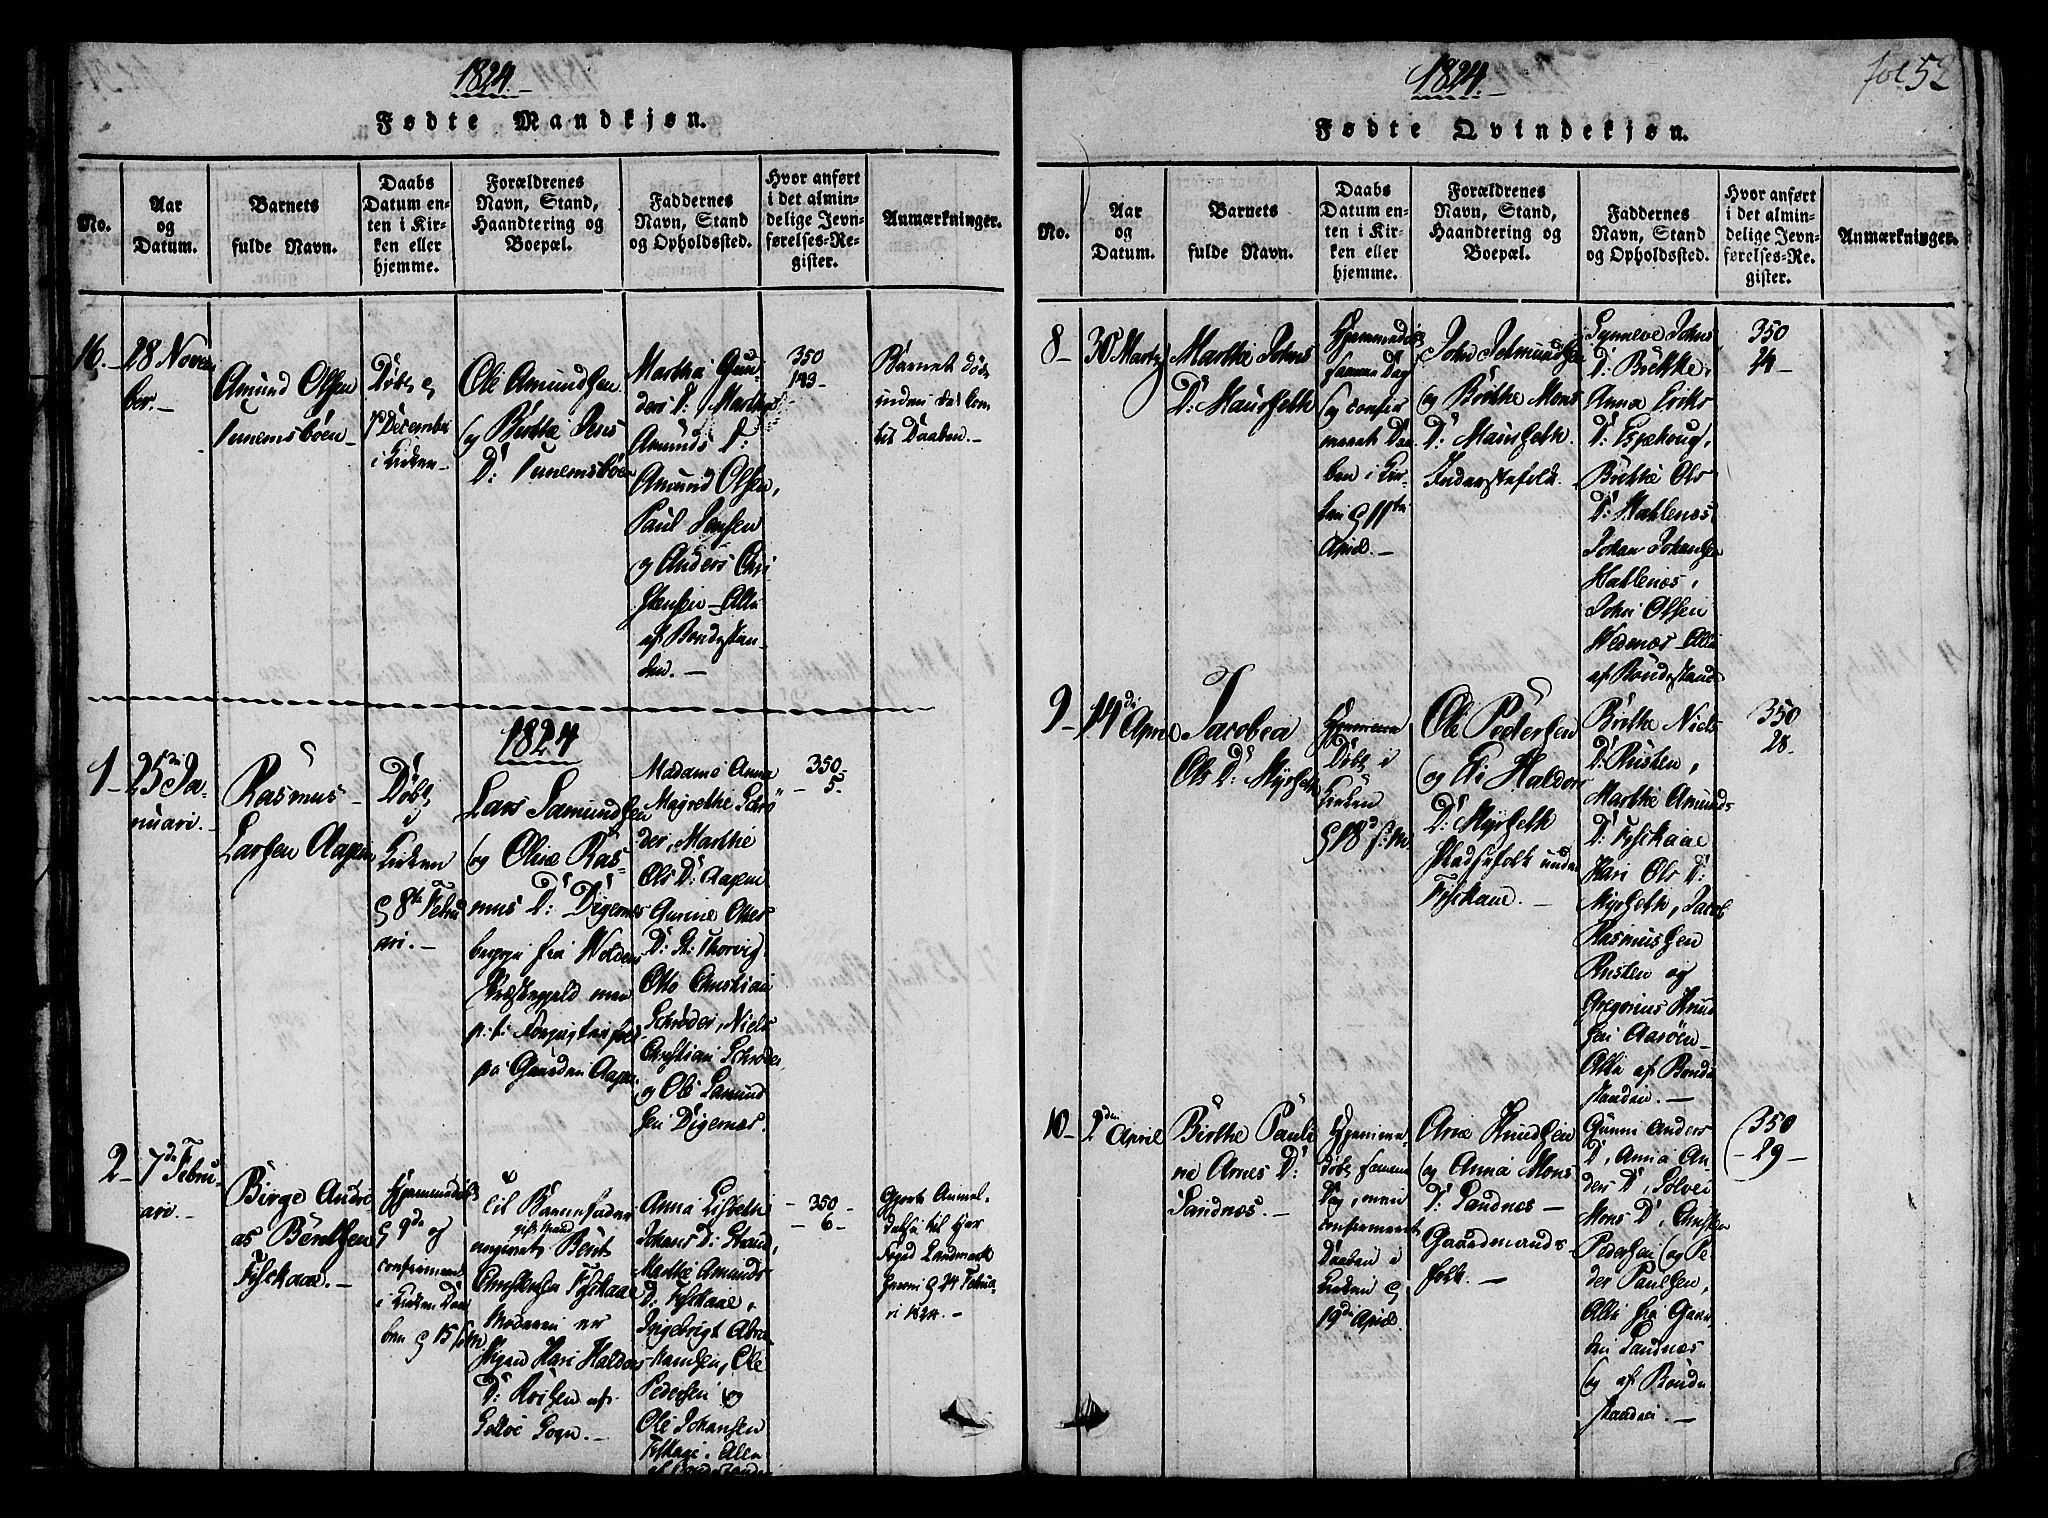 1824.
Fødte Mandkjøn.
No.
Aar
og
Datum.
Barnets
fulde Navn.
Daabs
Datum en-
ten i Kir-
ken eller
hjemme.
Forældrenes
Navn, Stand,
Haandtering og
Boepæl.
Faddernes
Navn, Stand
og Opholdssted.
Hvor anført
i det almin-
delige Jevn-
førelses-Re-
gister.
Anmærkninger.
16.
28 Novem
ber.
Amund Olsen
Døbt
7 December
i Kirken
Ole Amundsen
og Birthe Jens
D:
Marthe Gun
ders D: Marthe
Amunds D:
Amund Olsen,
Paul Jensen
og Anders Chri
stensen Alle
af Bondestan-
den.
350
Barnet døbt
inden det kom
til Daaben.
1824
1
25de Ja-
nuari.
Rasmus
Larsen Aagen
Døbt
i
Kirken
8de Febru
ari.
Lars Samundsen
og Oline Ras-
mus D: Digernæs
begge fra Wolden
Præstegjeld men
p: t:
paa Gaarden Aagen
Madame Anna
Magrethe Schrø
der, Marthe
Ols D: Aagen
Gurine
D:
Otto Christian
Schrøder, Niels
Christian Schrøder
og Ole Samund
sen Digernæs.
350
5.
2
7de Febru-
ari.
Birge Andre
as Bentsen
Fiskaae.
Hjemmedøbt
9de og
confirmeret
i Kirken Daa
ben 15
til Barnefader
angivet Bent
Christensen Fiskaae
Moderen er
Pigen Kari Haldors
D: af
Sogn.
Anna Lisbeth
Johans D: Strand,
Marthe Amunds
D: Fiskaae,
Ingebrigt Abra
hamsen, Ole
Pedersen og
Ole Johansen
Alle
350
6
Gjort Anmel-
delse til Hr
Foged Landmark
24 Februa
ri 1824.
1824.
fol 52
Fødte Qvindekjøn.
No.
Aar
og
Datum.
Barnets
fulde Navn.
Daabs
Datum en-
ten i Kir-
ken eller
hjemme.
Forældrenes
Navn, Stand,
Haandtering og
Boepæl.
Faddernes
Navn, Stand
og Opholdssted.
Hvor anført
i det almin-
delige Jevn-
førelses-Re-
gister.
Anmærkninger.
8
30 Martz
Marthe Johns
D: Maursetk
Hjemmedøbt
samme Dag
og confir
meret Daa
ben i Kir-
ken 11te
April.
John
og Birthe Mons
D:
Inderstefolk.
Synneve Johns
D: Brekke,
Anna Eriks
D:
Birthe Ols
D: Hatlenæs
Johan Johansen
Hatlenæs,
John Olsen
Wedenæs Alle
af Bondestand
350
24
9
14de April
Jacobea
Ols D: Myrseth
Hjemme
Døbt i
Kirken
18de
Ole Pedersen
og Eli Haldors
D: Myrseth
Pladsefolk under
Fiskaae.
Birthe Niels
D: Rusten,
Marthe Amunds
D: Fiskaae
Kari Ols D:
Myrseth, Jacob
Rasmussen
Rusten og
Gregorius Knud
sen Aarøen
Alle af Bonde
standen.
350
28.
10
2den April
Birthe Pauli
ne Arnes D:
Sandnæs.
Hjemme-
døbt samme
Dag, men
confirmeret
Daaben i
Kirken
19de April.
Arne Knudsen
og Anna Mons
D: Sandnæs
Gaardmands-
folk.
Gunni Anders
D, Anna An-
ders D, Sølvei
Mons D, Christen
Pedersen og Pe-
der Paulsen,
Alle fra Gaar
den Sandnæs
og af Bonde
standen.
350
29